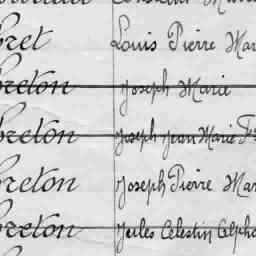 bret Louis Pierre Mar
breton Joseph Marie
breton Joseph Jean Marie Fr
breton Joseph Pierre Mar
breton Jules Celestin Alpho